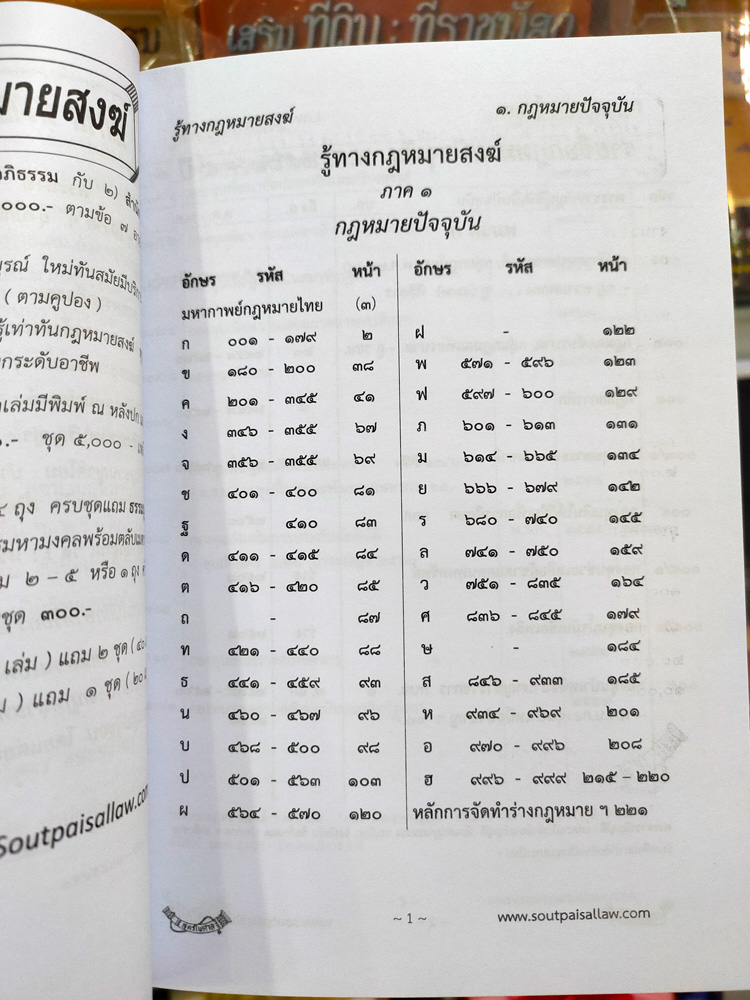 เสริม ที่ดิน : ที่ราชพัสดุ
มายสงฆ์
ภิธรรม กับ ๒)
๐๐๐.- ตามข้อ ๗
บูรณ์ ใหม่ทันสมัยมีบริ
( ตามคูปอง )
รู้เท่าทันกฎหมายสงฆ์
กระดับอาชีพ
เล่มมีพิมพ์ ณ หลังปก
.- ชุด ๕,๐๐๐ -
๔ ถุง ครบชุดแถม ธรรม
รมหามงคลพร้อมตลับ
ม ๒ – ๕ หรือ ๑ ถุง
ชุด ๓๐๐.-
เล่ม ) แถม ๒ ชุด
ม ) แถม ๑ ชุด
Soutpaisallaw.com
รู้ทางกฎหมายสงฆ์ ๑. กฎหมายปัจจุบัน
รู้ทางกฎหมายสงฆ์
ภาค ๑
กฎหมายปัจจุบัน
อักษร รหัส หน้า
มหากาพย์กฎหมายไทย (๓)
ก ๐๐๑ - ๑๗๙ ๒
ข ๑๘๐ - ๒๐๐ ๓๘
ค ๒๐๑ - ๓๔๕ ๔๑
ง ๓๔๖ - ๓๕๕ ๖๗
จ ๓๕๖ - ๓๕๕ ๖๙
ช ๔๐๑ - ๔๐๐ ๘๑
ฐ ๔๑๐ ๘๓
ด ๔๑๑ - ๔๑๕ ๘๔
ต ๔๑๖ - ๔๒๐ ๘๕
ถ - ๘๗
ท ๔๒๑ - ๔๔๐ ๘๘
ธ ๔๔๑ - ๔๕๙ ๙๓
น ๔๖๐ - ๔๖๗ ๙๖
บ ๔๖๘ - ๕๐๐ ๙๘
ป ๕๐๑ - ๕๖๓ ๑๐๓
ผ ๕๖๔ - ๕๗๐ ๑๒๐
อักษร รหัส หน้า
ฝ - ๑๒๒
พ ๕๗๑ - ๕๙๖ ๑๒๓
ฟ ๕๙๗ - ๖๐๐ ๑๒๙
ภ ๖๐๑ - ๖๑๓ ๑๓๑
ม ๖๑๔ - ๖๖๕ ๑๓๔
ย ๖๖๖ - ๖๗๙ ๑๔๒
ร ๖๘๐ - ๗๔๐ ๑๔๕
ล ๗๔๑ - ๗๕๐ ๑๕๙
ว ๗๕๑ - ๘๓๕ ๑๖๔
ศ ๘๓๖ - ๘๔๕ ๑๗๙
ษ - ๑๘๔
ส ๘๔๖ - ๙๓๓ ๑๘๕
ห ๙๓๔ - ๙๖๙ ๒๐๑
อ ๙๗๐ - ๙๙๖ ๒๐๘
ฮ ๙๙๖ - ๙๙๙ ๒๑๕ – ๒๒๐
หลักการจัดทำร่างกฎหมาย ฯ ๒๒๑
~ 1 ~ www.soutpaisallaw.com